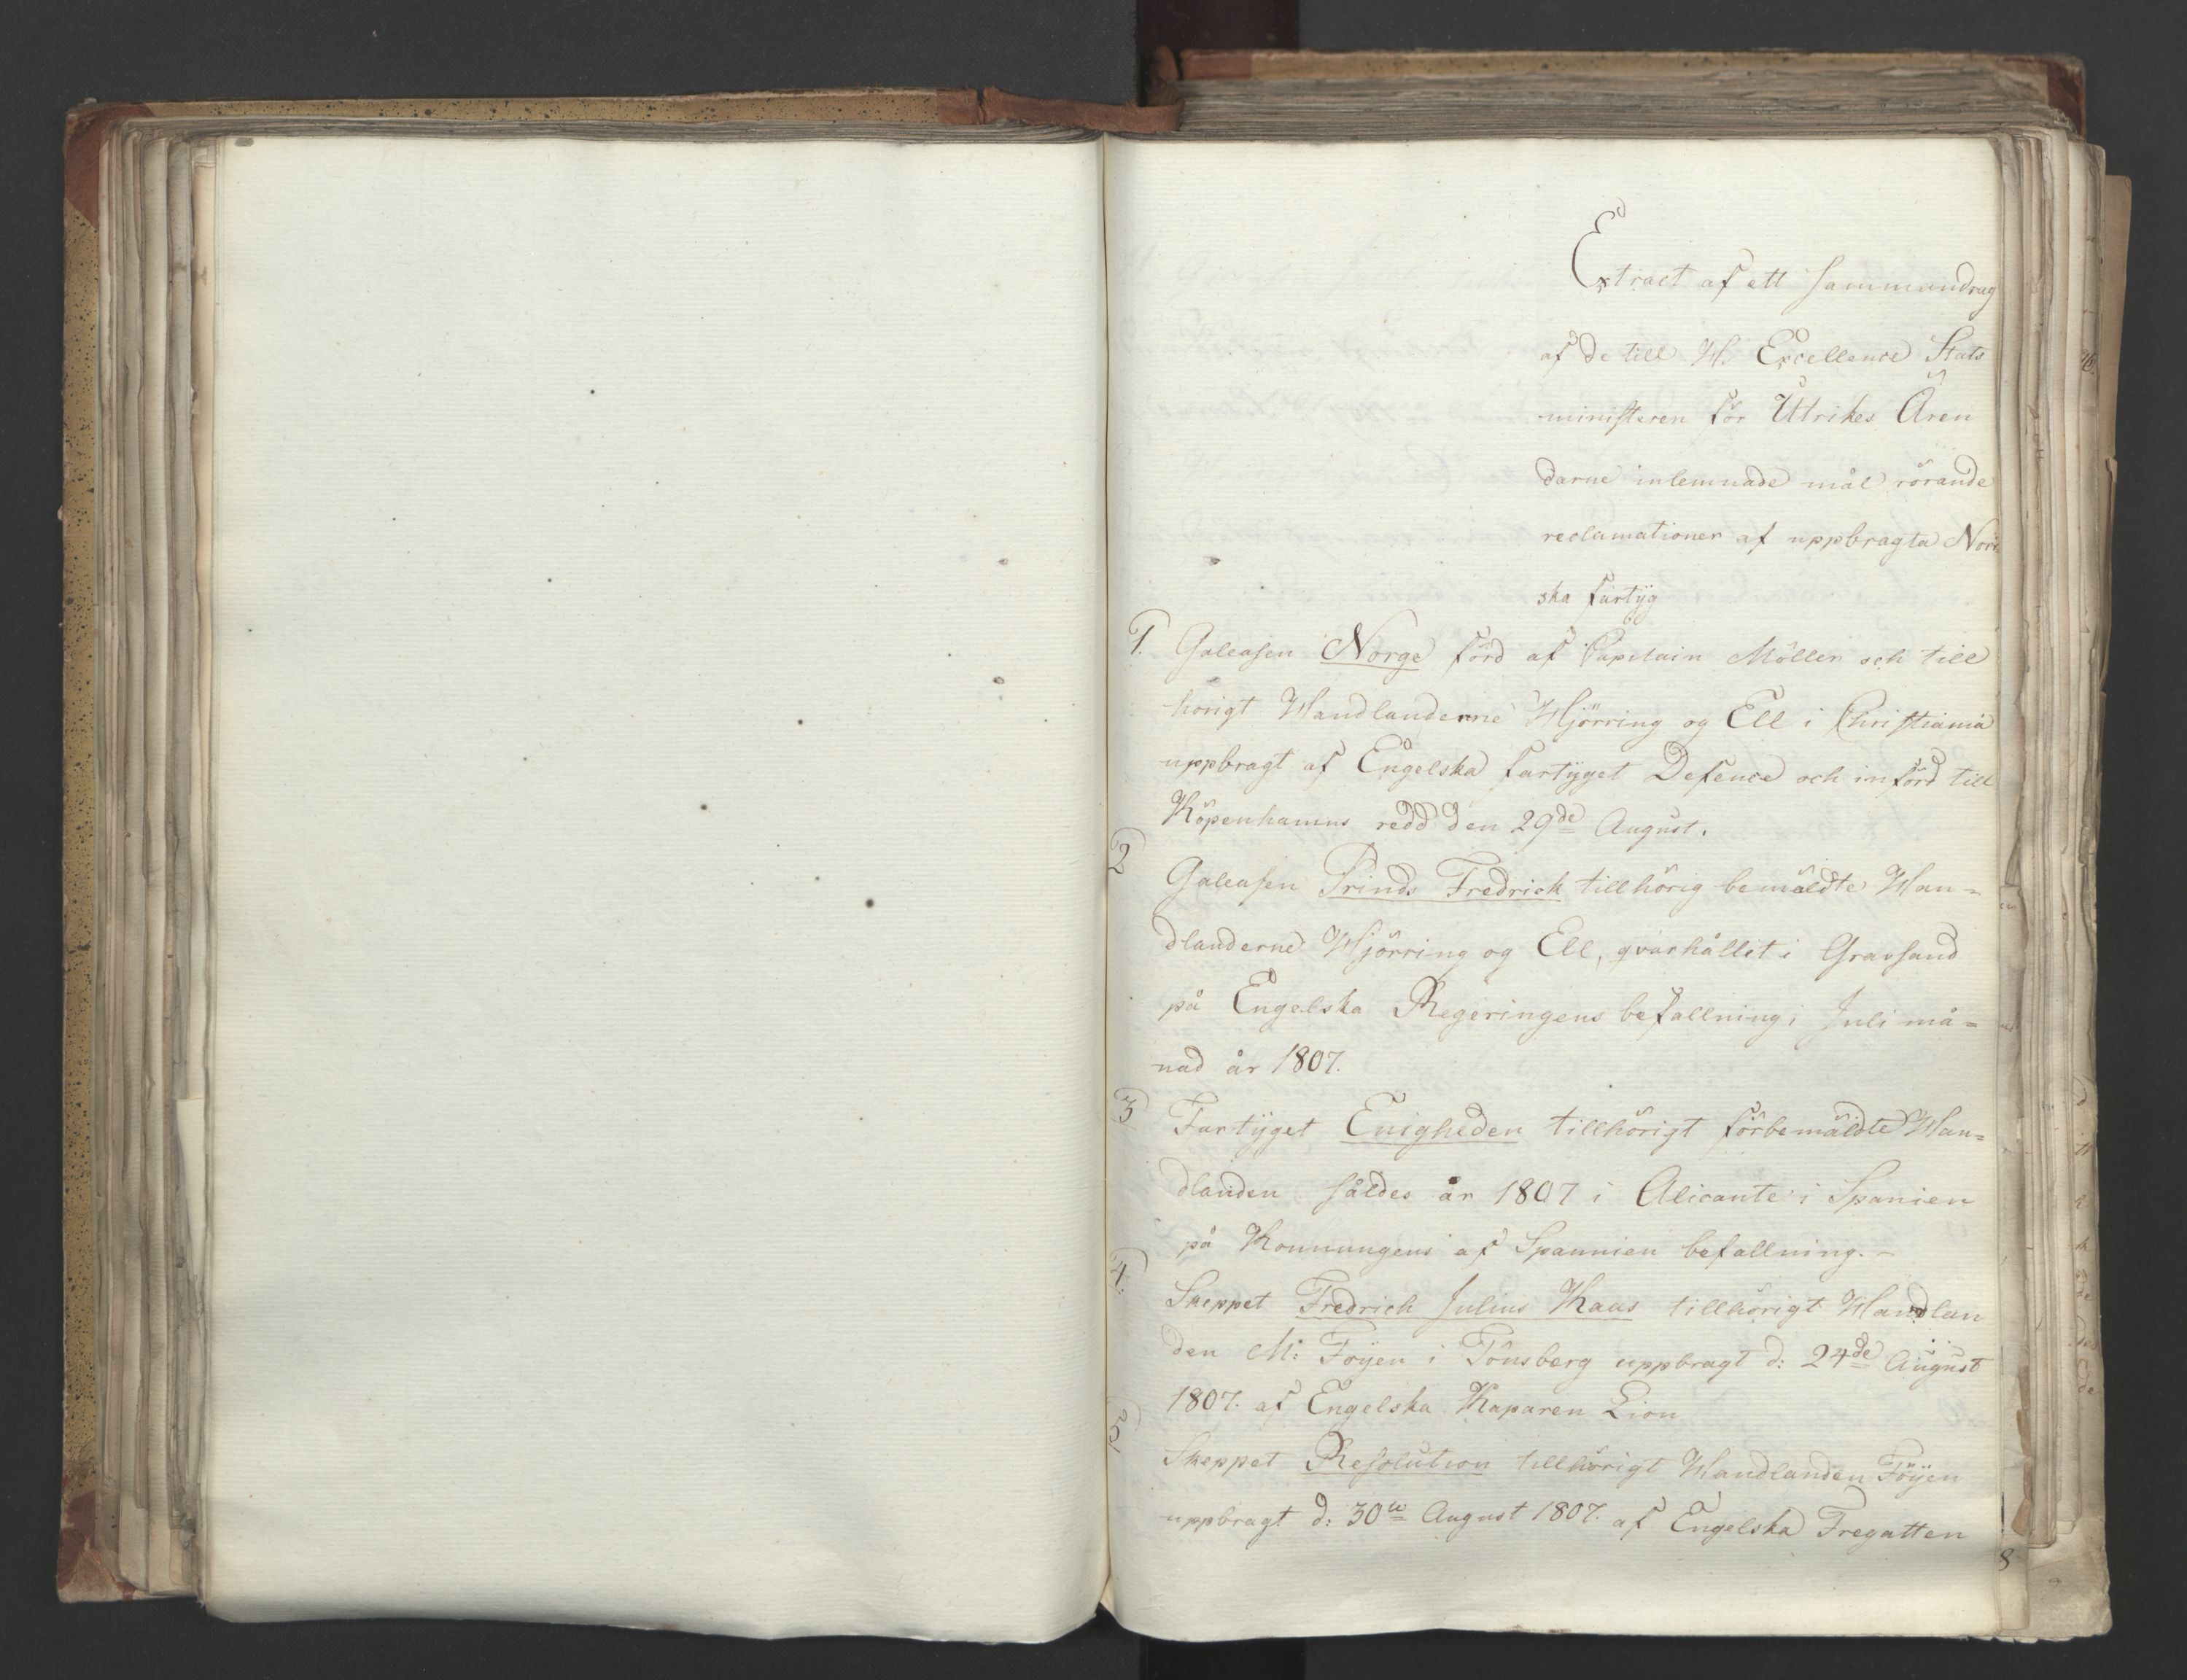 Extract af ett sammandrag
af de till H. Excellence Stats
ministeren för Utrikes Ären
darne inlemnade mål rörande
reclamationer af uppbragta Nor
ska fartyg
1. Galeasen Norge förd af Capitain Möller och till
horigt Handlanderne Hjörring og Ell i Christiania
uppbragt af Engelska fartyget Defence och införd till
Köpenhamns redd den 29de August.
2 Galeasen Prinds Fredrick tillhörig bemäldte Han=
dlanderne Hjörring og Ell, qvarhållet i Gravsand
på Engelska Regeringens befallning i Juli må=
nad år 1807.
3 Fartyget Enigheden tillhörigt förbemäldte Han=
dlanden såldes år 1807 i Alicante i Spanien
på Konnungens af Spannien befallning. -
4. Skeppet Fredrich Julius Kaas tillhörigt Handlan
den M: Foyen i Tönsberg uppbragt d: 24de August
1807. af Engelska Kaparen Lion
5 Skeppet Resolution tillhörigt Handlanden Föyen
uppbragt d: 30te August 1807. af Engelska Fregatten